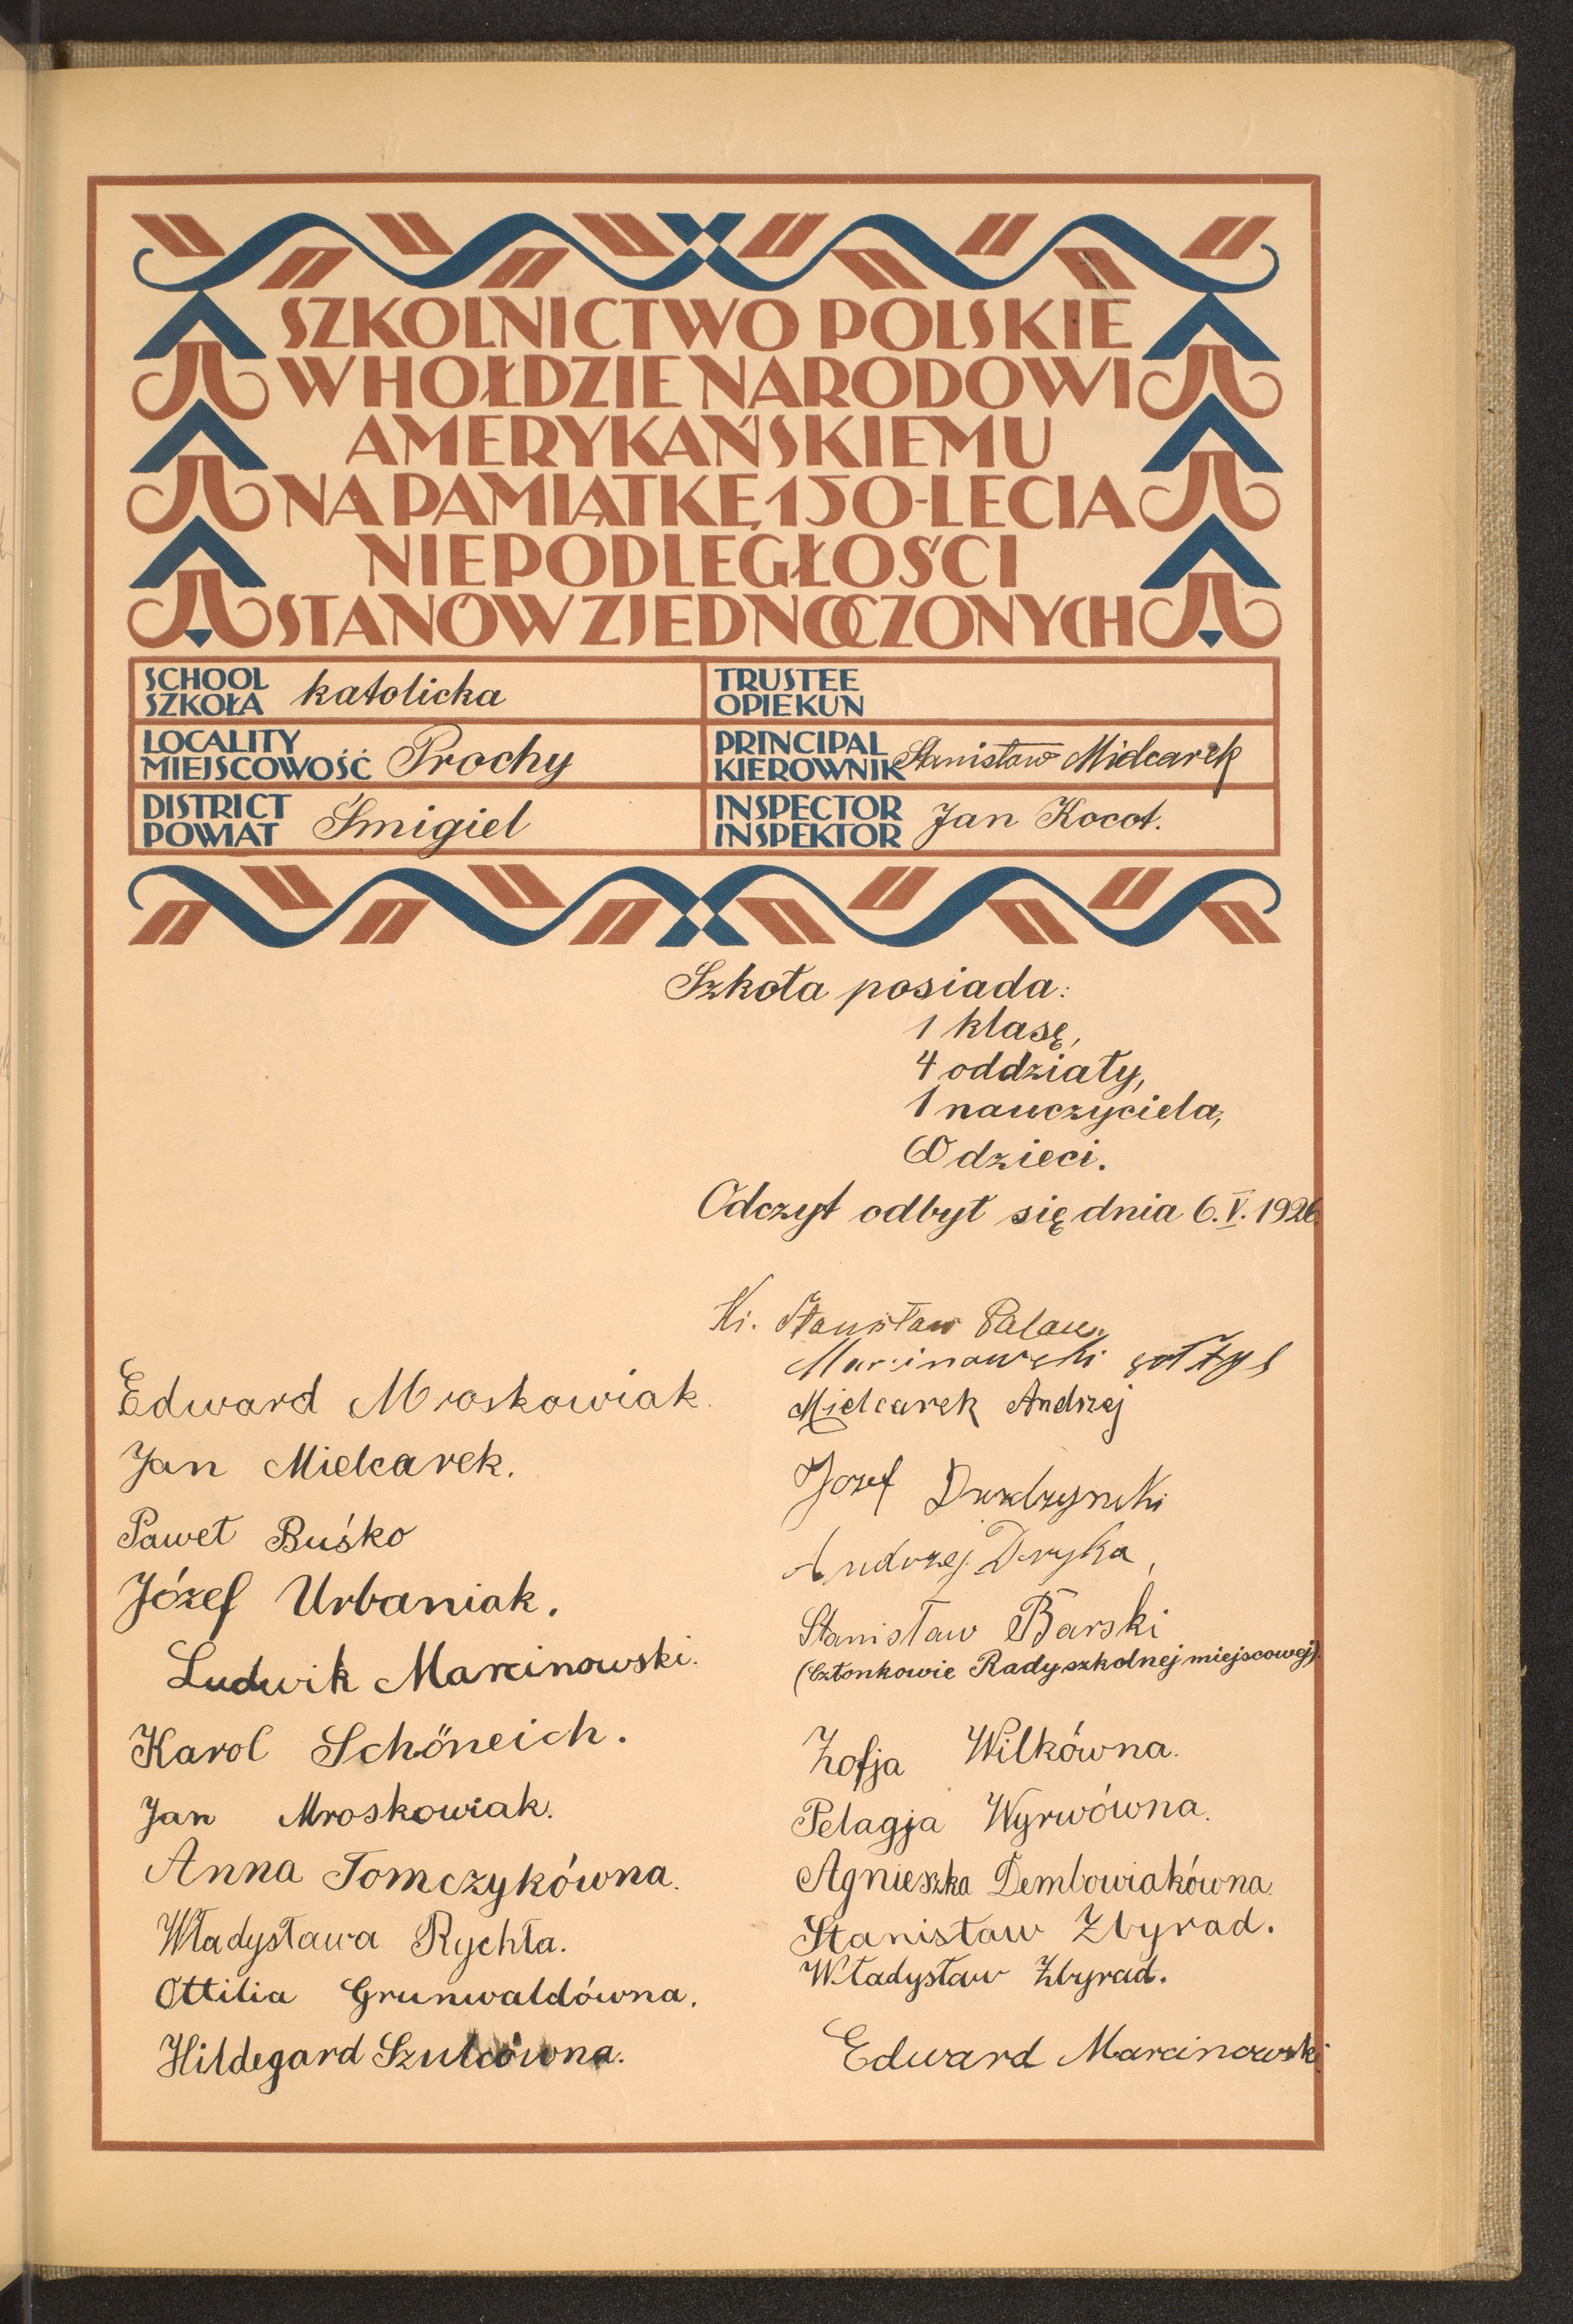 SZKOLNICTWO POLSKIE
W HOŁDZIE NARODOWI
AMERYKAŃSKIEMU
NA PAMIĄTKĘ 150-LECIA
NIEPODLEGŁOŚCI
STANÓW ZJEDNOCZONYCH
SCHOOL
SZKOŁA katolicka
TRUSTEE
OPIEKUN
LOCALITY
MIEJSCOWOŚĆ Prochy
PRINCIPAL
KIEROWNIK Stanisław Mielcarek
DISTRICT
POWIAT Śmigiel
INSPECTOR
INSPEKTOR Jan Kocot.
Szkoła posiada:
1 klasę,
4 oddziały,
1 nauczyciela,
60 dzieci.
Odczyt odbył się dnia 6. V. 1926.
Stanisław
Marcinowski sołtys
Mielcarek Andrzej
Józef
Andrzej Dryka,
Stanisław Barski
(Członkowie Rady szkolnej miejscowej).
Edward Mroskowiak.
Jan Mielcarek.
Paweł Buśko
Józef Urbaniak.
Ludwik Marcinowski.
Karol Schöneich.
Jan Mroskowiak.
Anna Tomczykówna.
Władysława Rychła.
Ottilia Grunwaldówna.
Hildegard Szulcówna.
Zofja Wilkówna.
Pelagja Wyrwówna.
Agnieszka Dembowiakówna.
Stanisław Zbyrad.
Władysław Zbyrad.
Edward Marcinowski